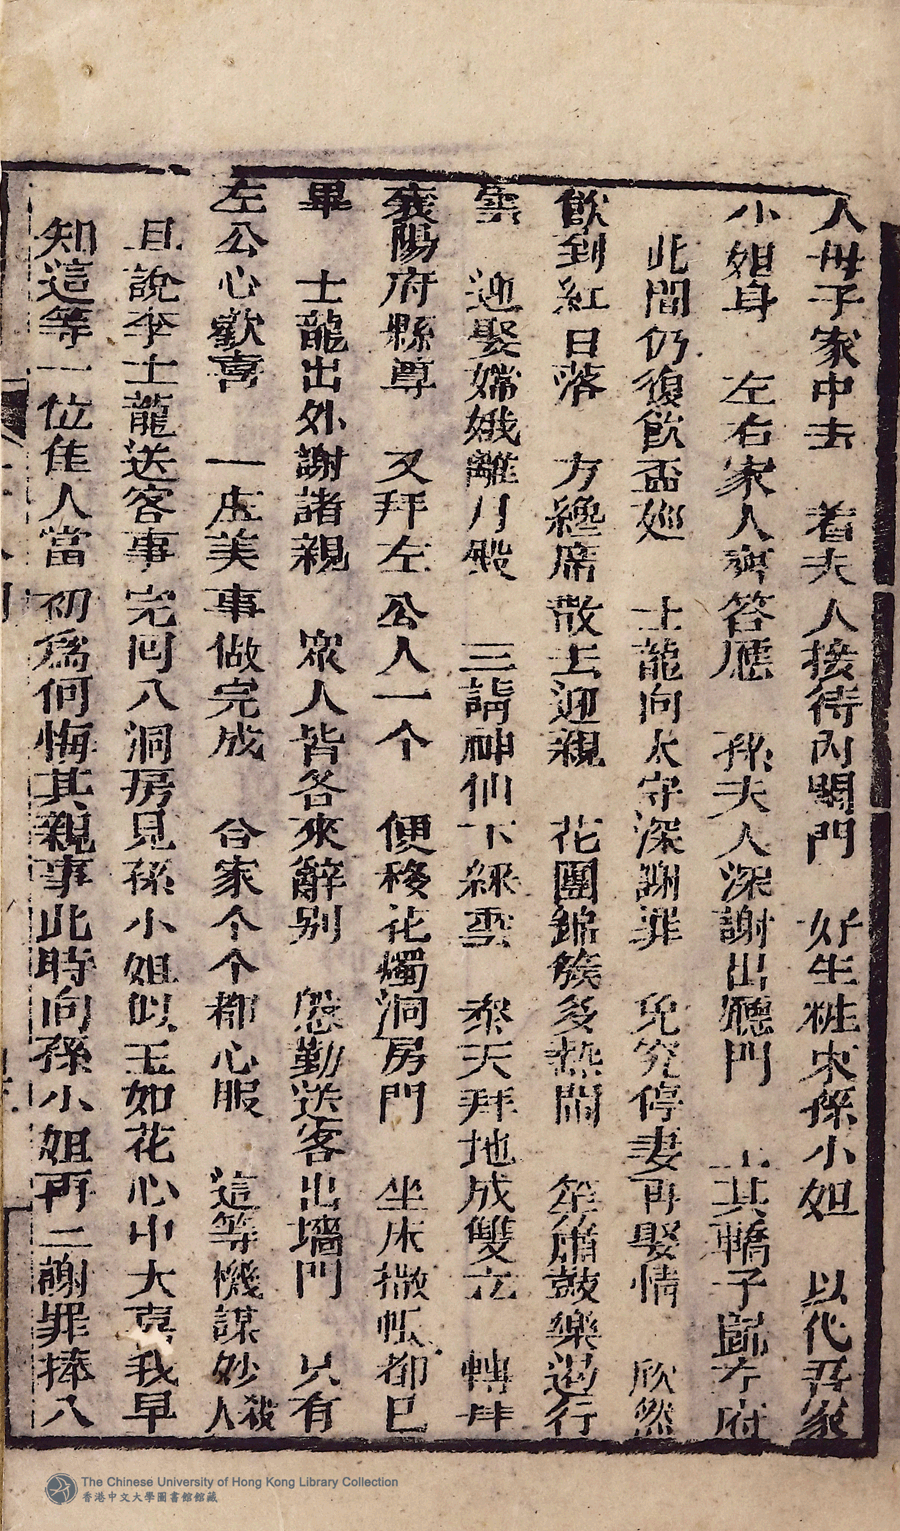 人母子家中去　着夫人接待內閣門　好生粧束孫小姐　以代吾家
小姐身　左右家人齊答應　孫夫人深謝出廳門　上其轎子歸左府
此間仍復飲盃廵　士龍向太守深謝罪　免究停妻再娶情　欣然
飲到紅日落　方纔席散去迎親　花團錦簇多熱鬧　笙簫鼓樂過行
雲　迎娶嫦娥離月殿　三請神仙下綵雲　叅天拜地成雙立　轉
襄陽府縣尊　又拜左公人一个　便移花燭洞房門　坐床撒帳都已
畢　士龍出外謝諸親　眾人皆各來辭别　慇勤送客出墻門　只有
左公心歡喜　一庄美事做完成　合家个个都心服　這等機謀妙殺人
且說李士龍送客事完回入洞房見孫小姐似玉如花心中大喜我早
知這等一位佳人當初為何悔其親事此時向孫小姐再三謝罪捧入
The Chinese University of Hong Kong Library Collection
香港中文大學圖書館館藏